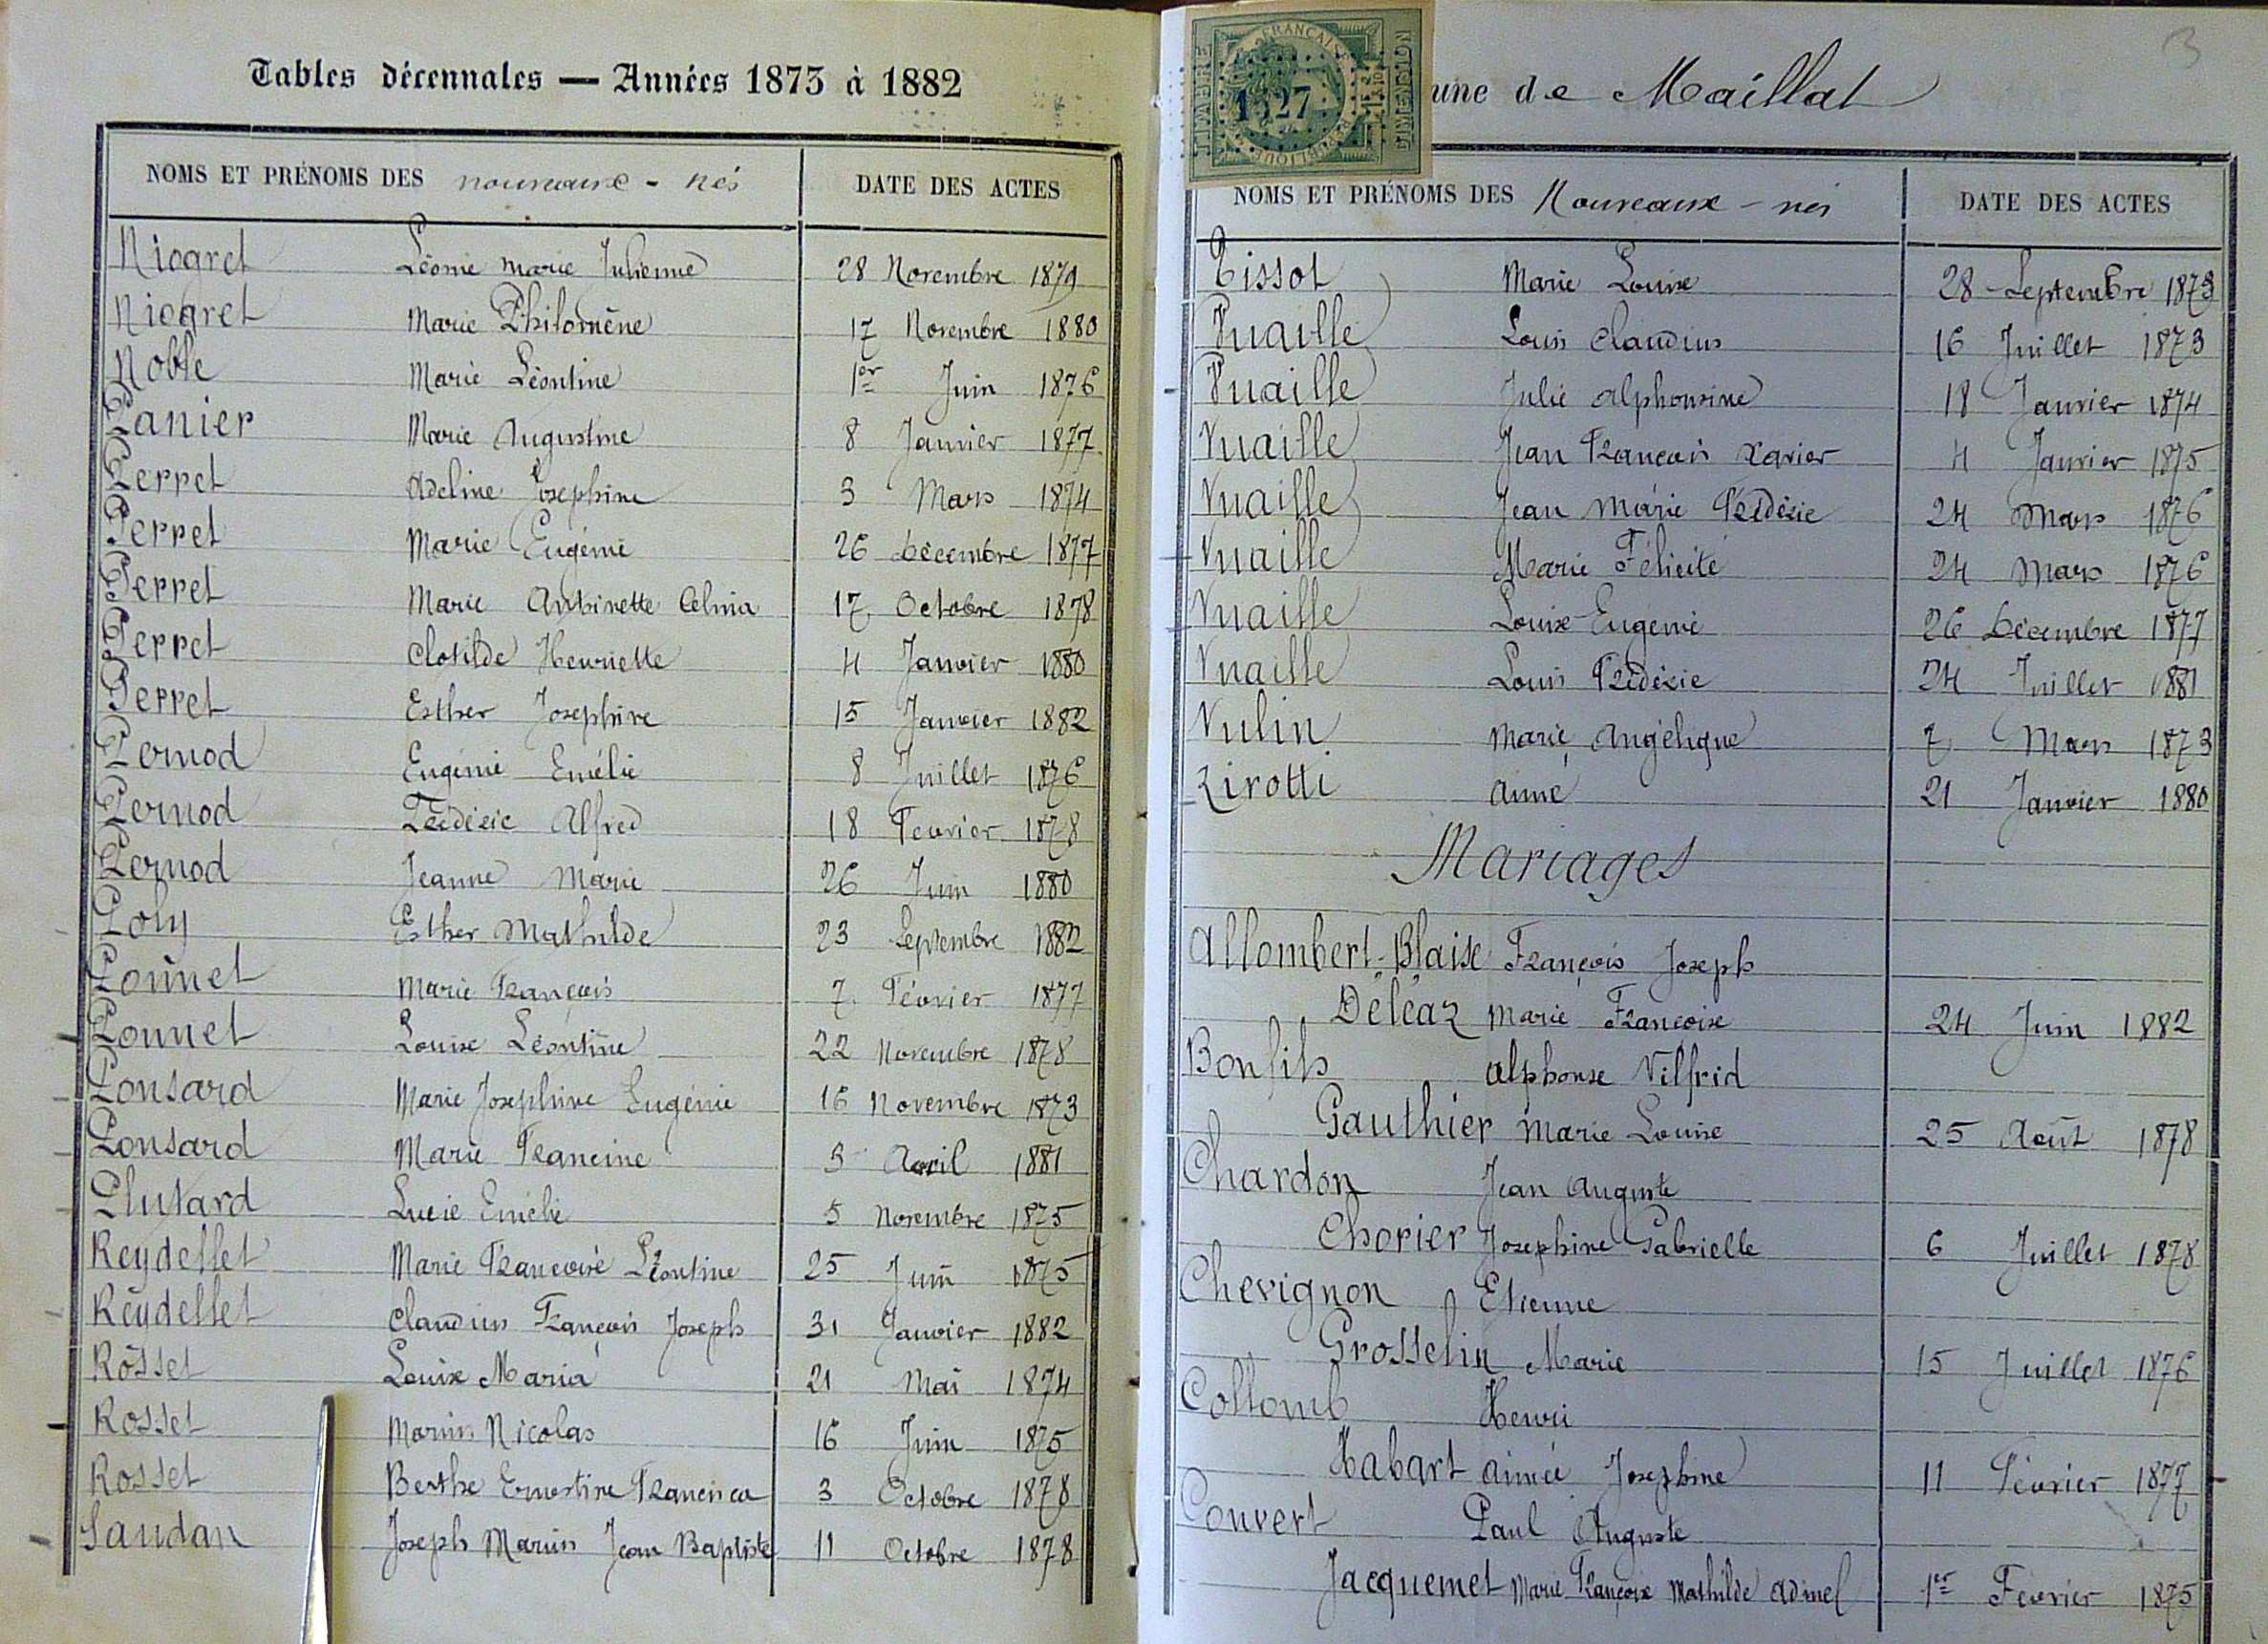 Tables décennales — Années 1873 à 1882
NOMS ET PRÉNOMS DES nouveaux-nés DATE DES ACTES
Niogret Léonie Marie Julienne 28 Novembre 1879
Niogret Marie Philomène 17 Novembre 1880
Noble Marie Léontine 1er Juin 1876
Panier Marie Augustine 8 Janvier 1877
Perret Adeline Josephine 3 Mars 1874
Perret Marie Eugénie 26 Décembre 1877
Perret Marie Antoinette Celinia 17 Octobre 1878
Perret Clotilde Henriette 4 Janvier 1880
Perret Esther Josephine 15 Janvier 1882
Pernod Eugénie Emélie 8 Juillet 1876
Pernod Frédéric Alfred 18 Fevrier 1878
Pernod Jeanne Marie 26 Juin 1880
Poly Esther Mathilde 23 Septembre 1882
Ponnet Marie François 7 Février 1877
Ponnet Louise Léontine 22 Novembre 1878
Ponsard Marie Josephine Eugénie 16 Novembre 1873
Ponsard Marie Francine 3 Avril 1881
Plutard Lucie Emélie 5 Novembre 1875
Reydellet Marie Françoise Léontine 25 Juin 1875
Reydellet Claudius François Joseph 31 Janvier 1882
Rosset Louise Maria 21 Mai 1874
Rosset Marius Nicolas 16 Juin 1875
Rosset Berthe Ernestine Francisca 3 Octobre 1878
Saudan Joseph Marius Jean Baptiste 11 Octobre 1878
TIMBRE
FRANÇAISE
RÉPUBLIQUE
DIMENSION
1527
3
une de Maillat
NOMS ET PRÉNOMS DES Nouveaux-nés DATE DES ACTES
Tissot Marie Louise 28 Septembre 1873
Vuaille Louis Claudius 16 Juillet 1873
Vuaille Julie Alphonsine 18 Janvier 1874
Vuaille Jean François Xavier 4 Janvier 1875
Vuaille Jean Marie Frédéric 24 Mars 1876
Vuaille Marie Félicité 24 Mars 1876
Vuaille Louise Eugénie 26 Décembre 1877
Vuaille Louis Frédéric 24 Juillet 1881
Vulin Marie Angélique 7 Mars 1873
Zirotti Anne 21 Janvier 1880
Mariages
Allombert-Blaise François Joseph
Déléaz Marie Françoise 24 Juin 1882
Bonfils Alphonse Vilfrid
Gauthier Marie Louise 25 Août 1878
Chardon Jean Auguste
Chorier Josephine Gabrielle 6 Juillet 1878
Chevignon Etienne
Grosselin Marie 15 Juillet 1876
Collomb Henri
Habart Aimée Josephine 11 Février 1877
Convert Paul Auguste
Jacquemet Marie Françoise Mathilde 1er Fevrier 1875